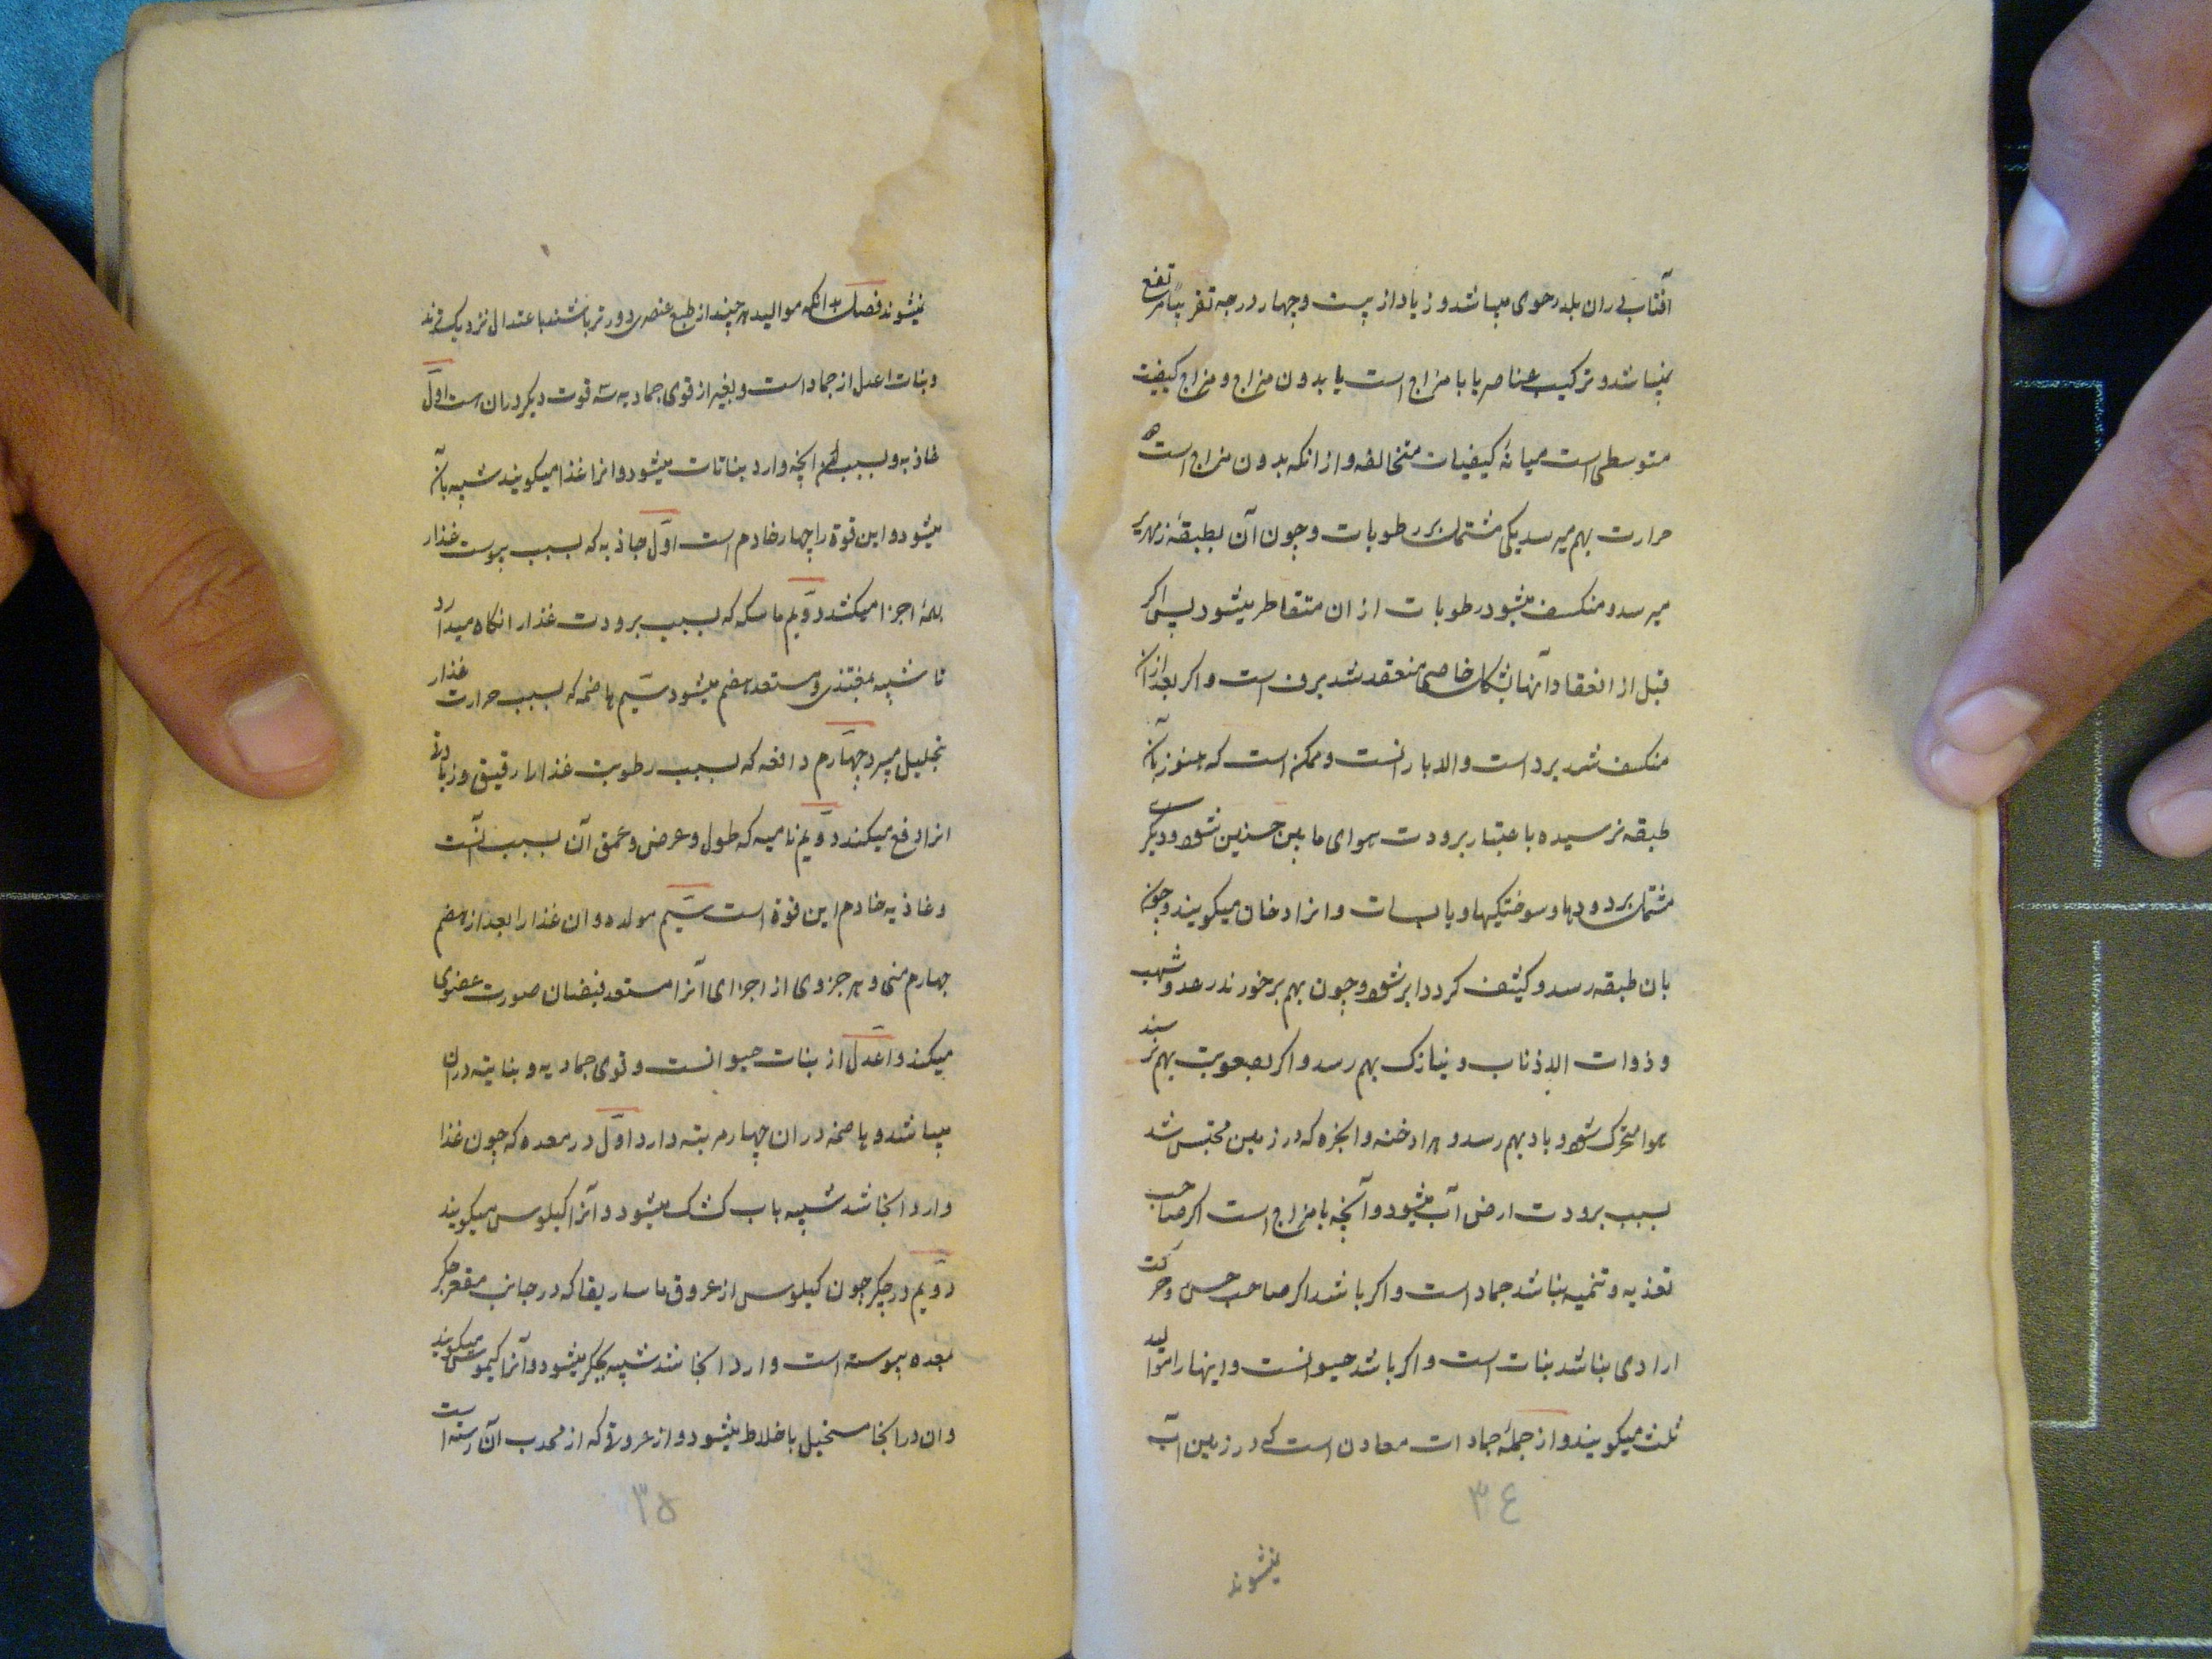 آفتاب دران بلد رحوی میباشد و زیاد از بیست و چهار درجه تقریباً مرتفع
نمیباشد و ترکیب عناصر یا با مزاج است یا بدون مزاج و مزاج کیفیت
متوسطی است میانهٔ کیفیات متخالفه و از انکه بدون مزاج است
حرارت بهم میرسد یکی مشتمل بر رطوبات و چون آن بطبقهٔ زمهریر
میرسد و منکسف میشود رطوبات از ان متقاطر میشود پس اکر
قبل از انعقاد آنها بشکل خاصی منعقد شد برف است و اکر بعد از ان
منکسف شد برد است والا بارانست و ممکن است که هنوز بآن
طبقه نرسیده باعتبار برودت هوای مابین چنین شود و دیکر
مشتمل بر دودها و سوختکیها و یابسات و انرا دخان میکویند و چون
بان طبقه رسد و کثیف کردد ابر شود و چون بهم برخورند رعد و شهب
و ذوات الاذناب و نیازک بهم رسد و اکر بصعوبت بهم رسند
هوا متحرک شود و باد بهم رسد و هر ادخنه و ابخره که در زمین محتبس شد
بسبب برودت ارض آب میشود و آنچه با مزاج است اکر صاحب
تغذیه و تنمیه نباشد جماد است و اکر باشد اکر صاحب حس و حرکت
ارادی نباشد نبات است و اکر باشد حیوانست و اینها را موالید
ثلث میکویند و از جملهٔ جمادات معادن است که در زمین آب
٣٤
نمیشوند
نمیشوند فصل بدانکه موالید هر چند از طبع عنصری دورتر باشند باعتدال نزدیک ترند
و نبات اعدل از جماد است و بغیر از قوی جمادیه سه قوت دیکر دران است اوّل
غاذیه و بسبب انچه وارد بناتات میشود و انرا غذا میکویند شبیه بآن
میشود و این قوة را چهار خادم است اوّل جاذبه که بسبب یبوست غذا را
بهمهٔ اجزا میکشد دویّم ماسکه که بسبب برودت غذا را نکاه میدارد
تا شبیه بمغتذی و مستعد هضم میشود سیّم هاضمه که بسبب حرارت غذا را
بتحلیل میبرد چهارم دافعه که بسبب رطوبت غذا را رقیق و زیادتی
انرا دفع میکند دویّم نامیه که طول و عرض و عمق آن بسبب آنست
و غاذیه خادم این قوة است سیّم مولده و ان غذا را بعد از هضم
چهارم منی و هر جزوی از اجزای آنرا مستعد فیضان صورت عضوی
میکند و اعدل از نبات حیوانست و قوی جمادیه و نباتیه دران
میباشد و هاضمه دران چهار مرتبه دارد اوّل در معده که چون غذا
وارد انجا شد شبیه بآب کشک میشود و آنرا کیلوس میکویند
دویّم در جکر چون کیلوس از عروق ماساریقا که در جانب مقعر جکر
بمعده پیوسته است وارد انجا شد شبیه بجکر میشود و آنرا کیموس میکویند
و ان در انجا مستحیل باخلاط میشود و از عروقی که از محدب آن رسته است
٣٥